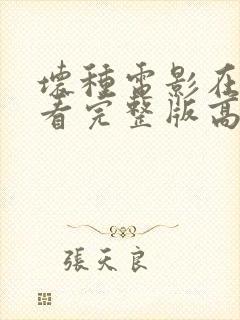 壞種電影在
看完整版高
張天良